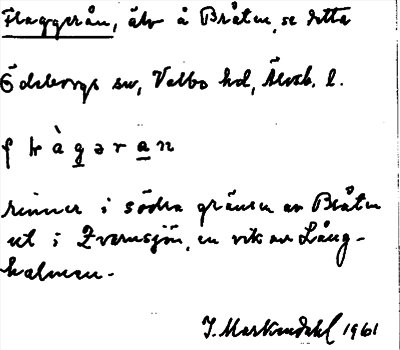 Flaggerån, älv å Bråten, se detta
Ödeborgs sn, Valbo hd, Älvsb. l.
rinner i södra gränsen av Bråten
ut i Kvarnsjön, en vik av Lång-
halmen.
J. Markendahl 1961